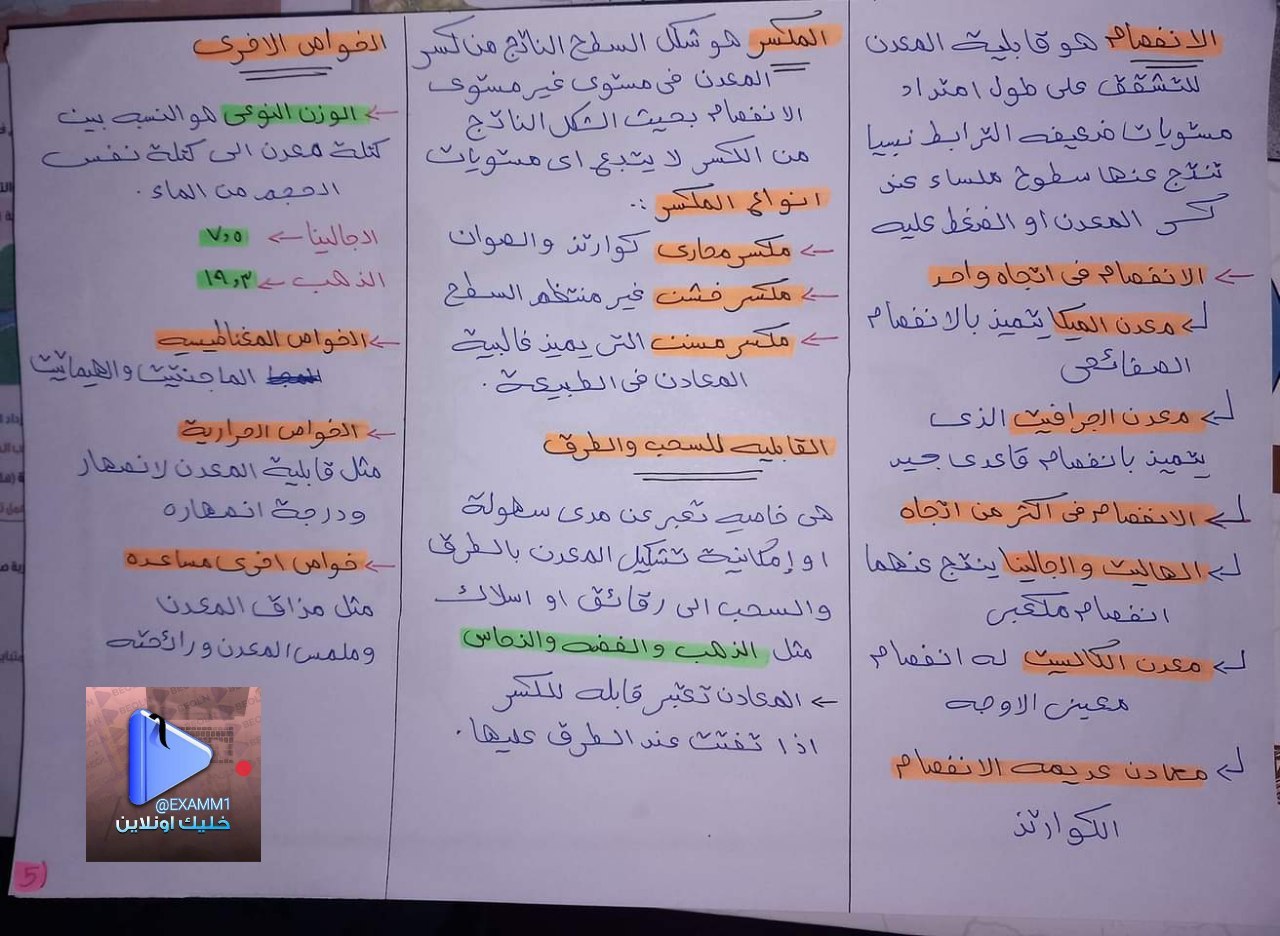 الانفصام هو قابلية المعدن
للتشقق على طول امتداد
مستويات ضعيفه الترابط نسبيا
تنتج عنها سطوح ملساء عند
كسر المعدن او الضغط عليه
← الانفصام فى اتجاه واحد
معدن الميكا يتميز بالانفصام
الصفائحى
معدن الجرافيت الذى
يتميز بانفصام قاعدى جيد
الانفصام فى اكثر من اتجاه
الهاليت والجالينا ينتج عنهما
انفصام مكعبى
معدن الكالسيت له انفصام
معينى الاوجه
معادن عديمه الانفصام
الكوارتز
المكسر هو شكل السطح الناتج من كسر
المعدن فى مستوى غير مستوى
الانفصام بحيث الشكل الناتج
من الكسر لا يتبع اى مستويات
انواع المكسر :.
← مكسر محارى كوارتز والصوان
← مكسر خشن غير منتظم السطح
← مكسر مسنن التى يميز غالبية
المعادن فى الطبيعة .
القابليه للسحب والطرق
هى خاصيه تعبر عن مدى سهولة
او إمكانية تشكيل المعدن بالطرق
والسحب الى رقائق او اسلاك
مثل الذهب والفضه والنحاس
← المعادن تعتبر قابله للكسر
اذا تفتت عند الطرق عليها .
الخواص الاخرى
← الوزن النوعى هو النسبه بين
كتلة معدن الى كتلة نفس
الحجم من الماء .
الجالينا ← ٧,٥
الذهب ← ١٩,٣
← الخواص المغناطيسيه
الماجنتيت والهيماتيت
← الخواص الحرارية
مثل قابلية المعدن لانصهار
ودرجة انصهاره
← خواص اخرى مساعده
مثل مذاق المعدن
وملمس المعدن ورائحته
@EXAMM1
خليك اونلاين
5)